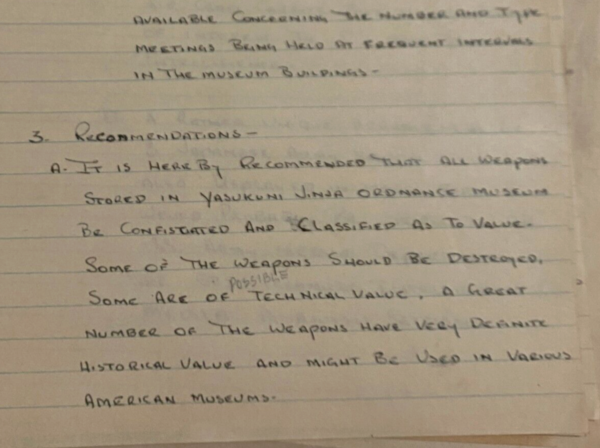 AVAILABLE CONCERNING THE NUMBER AND TYPE
MEETINGS BEING HELD AT FREQUENT INTERVALS
IN THE MUSEUM BUILDINGS-
3. RECOMMENDATIONS-
A. IT IS HERE BY RECOMMENDED THAT ALL WEAPONS
STORED IN YASUKUNI JINJA ORDNANCE MUSEUM
BE CONFISTCATED AND CLASSIFIED AS TO VALUE.
SOME OF THE WEAPONS SHOULD BE DESTROYED,
POSSIBLE
SOME ARE OF TECHNICAL VALUE, A GREAT
NUMBER OF THE WEAPONS HAVE VERY DEFINITE
HISTORICAL VALUE AND MIGHT BE USED IN VARIOUS
AMERICAN MUSEUMS.